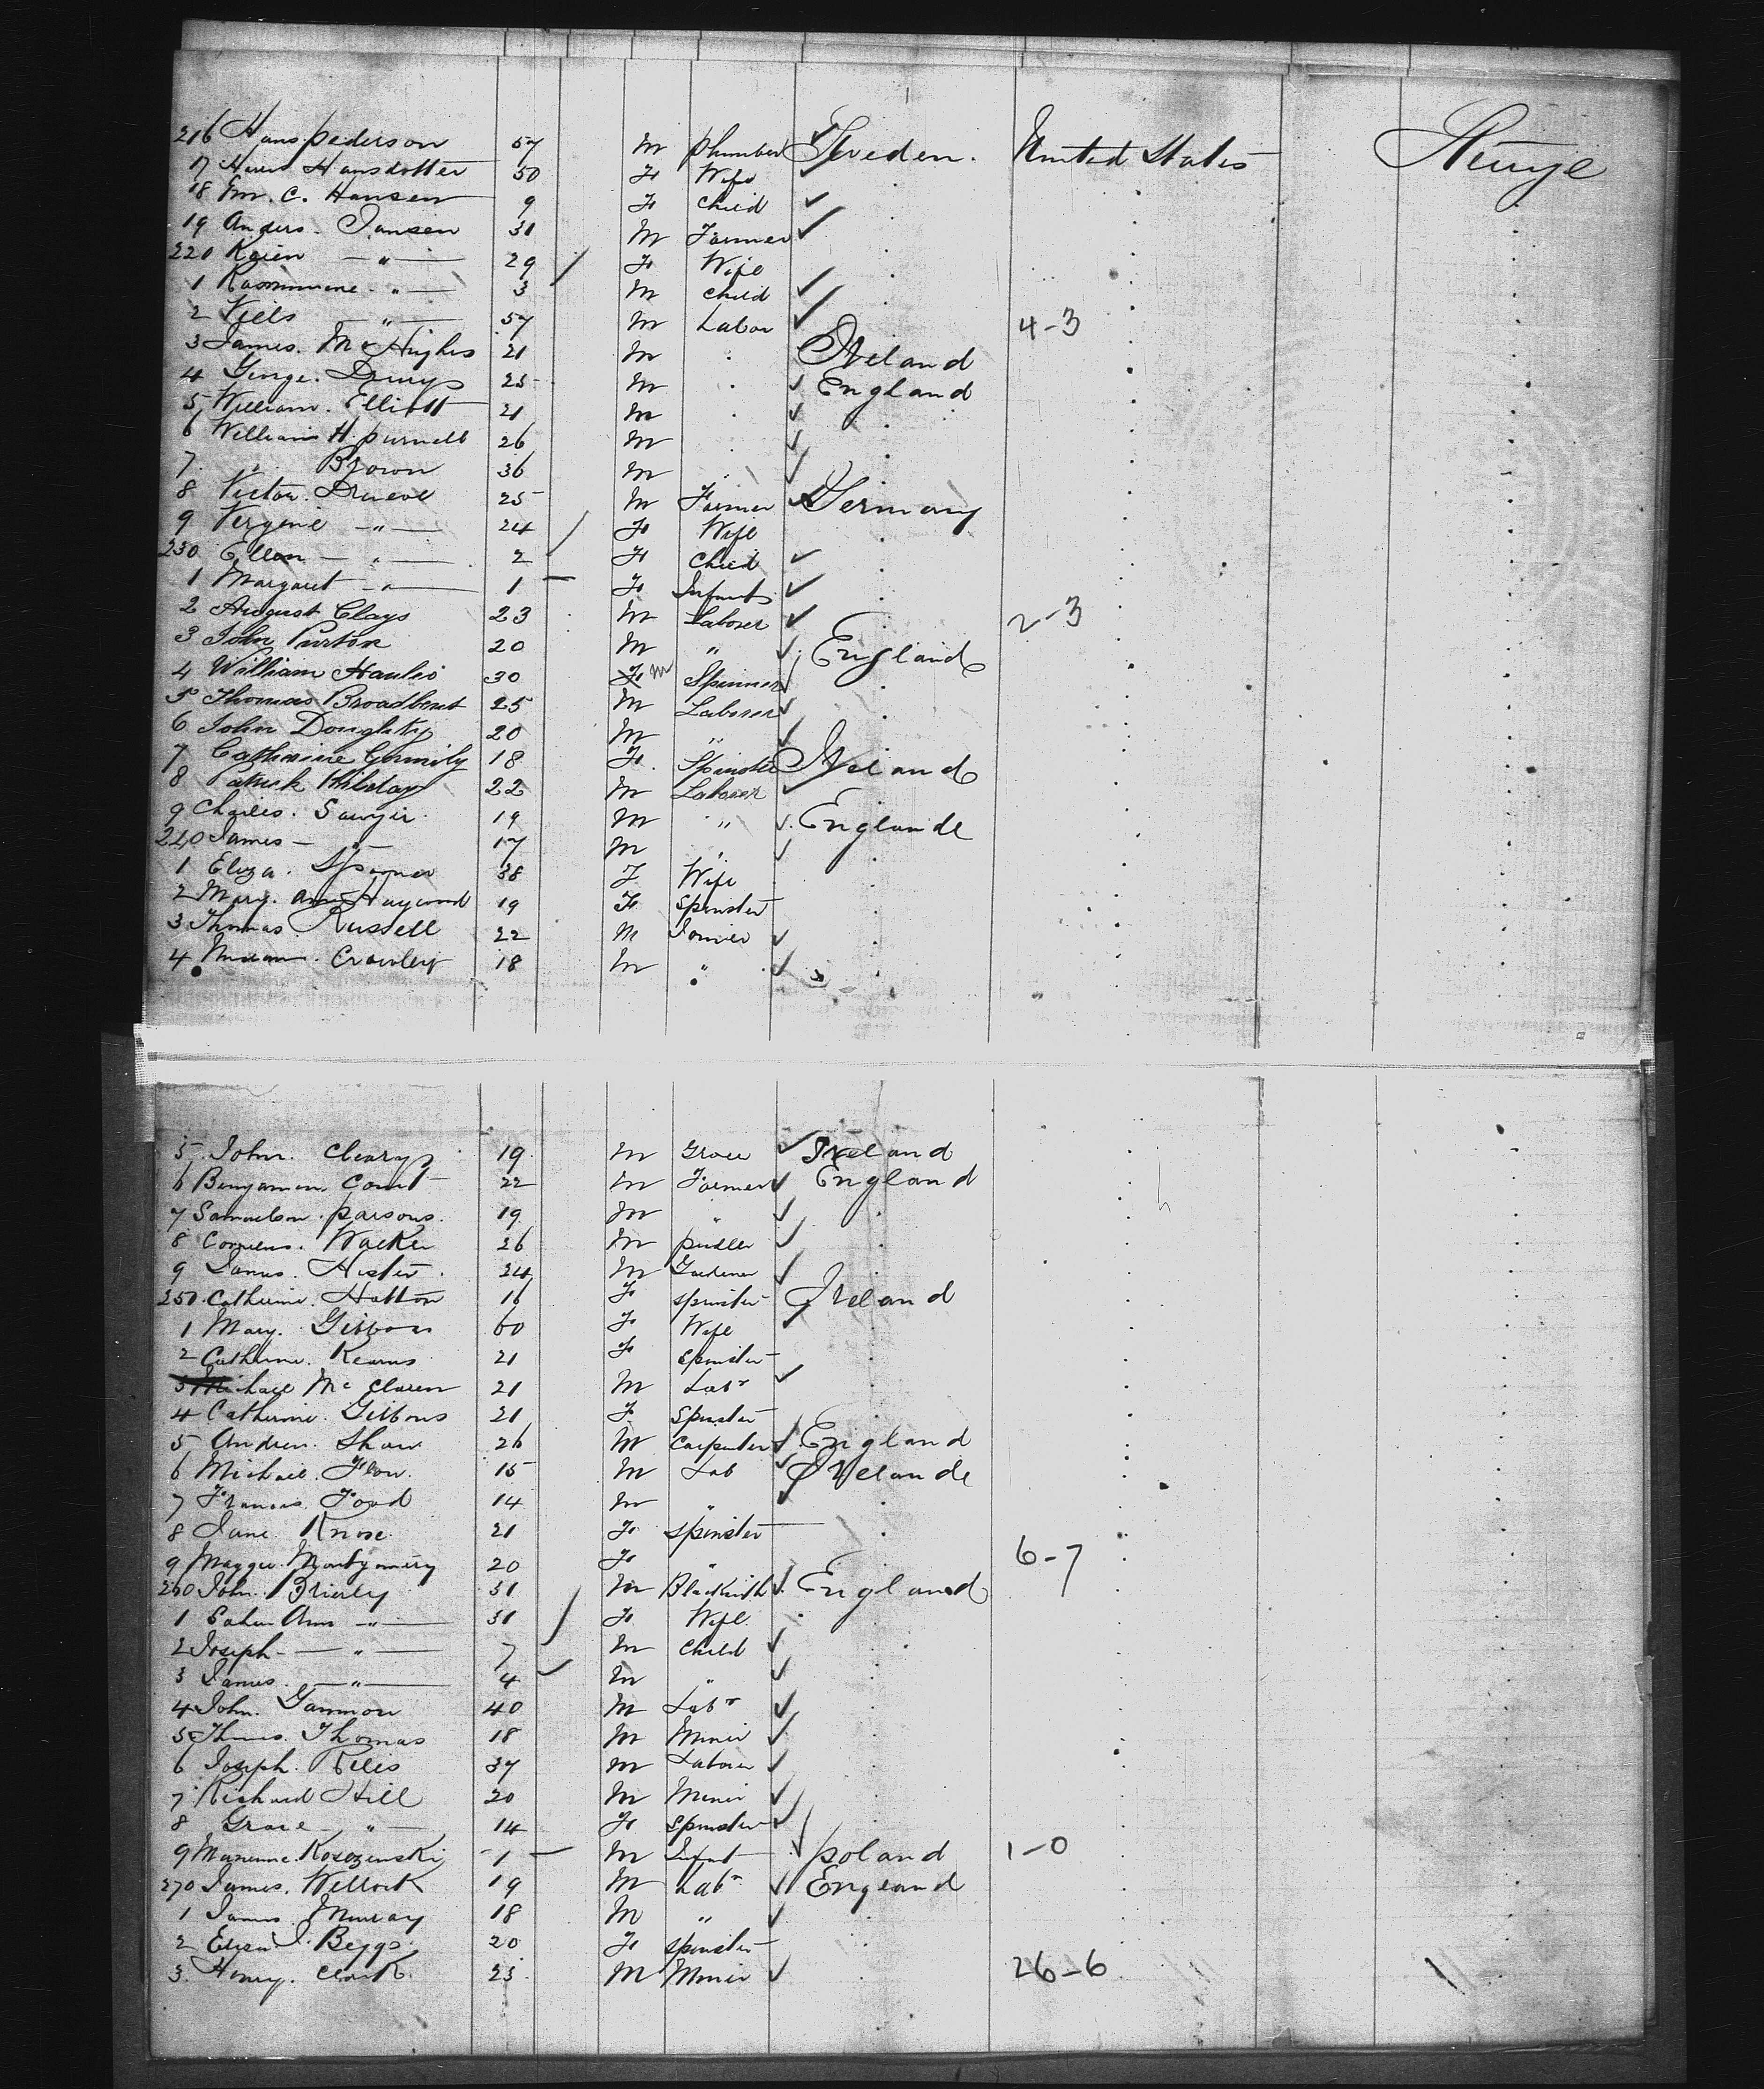 216 Hans pederson 57 M plumber Sweden. United States
17 Hansdotter 50 F Wife
18 Em. C. Hansen 9 F child
19 Anders Jansen 31 M Farmer
220 Karen — " — 29 F Wife
1 — " — 3 M child
2 Niels — " — 57 M Labor 4-3
3 James Mc Hughes 21 M Ireland
4 George Drury 25 M England
5 William Elliott 21 M
6 William H. purnell 26 M
7 Brown 36 M
8 Victor 25 M Farmer Germany
9 Vergine — " — 24 F Wife
230 Ellen — " — 2 F child
1 Margaret — " — 1 F Infant
2 August Clays 23 M Laborer 2-3
3 John Purton 20 M " England
4 William 30 F M Spinner
5 Thomas Broadbent 25 M Laborer
6 John Doughty 20 M "
7 Catherine Gormily 18 F Spinster Ireland
8 Patrick 22 M Laborer
9 Charles Sawyer 19 M " England
240 James — " — 17 M
1 Eliza 38 F Wife
2 Mary Ann Haywood 19 F spinster
3 Thomas Russell 22 M Joiner
4 Crowley 18 M "
5 John Cleary 19 M Grocer Ireland
6 Benjamin Court 22 M Farmer England
7 Samuelson parsons 19 M "
8 Walker 26 M pudler
9 James 24 M Gardener
250 Catherine Hatton 16 F spinster Ireland
1 Mary Gibbons 60 F Wife
2 Catherine Kearns 21 F spinster
3 Michael Mc Claren 21 M Labr
4 Catherine Gibbons 21 F Spinster
5 Andrew Shaw 26 M Carpenter England
6 Michael 15 M Lab Ireland
7 Francis Foad 14 M "
8 Jane Knox 21 F spinster
9 Maggie Montgomery 20 F " 6-7
260 John Brierly 31 M Blacksmith England
1 Ann — " — 31 F Wife
2 Joseph — " — 7 M child
3 James — " — 4 M "
4 John Gammon 40 M Labr
5 Thomas Thomas 18 M Miner
6 Joseph 37 M Laborer
7 Richard Hill 20 M Miner
8 Grace — " — 14 F spinster
9 Kosczenski 1 M Infant poland 1-0
270 James Wellock 19 M Labr England
1 James Murray 18 M "
2 Eliza J. Beggs 20 F spinster
3. Henry Clark 23 M Miner 26-6